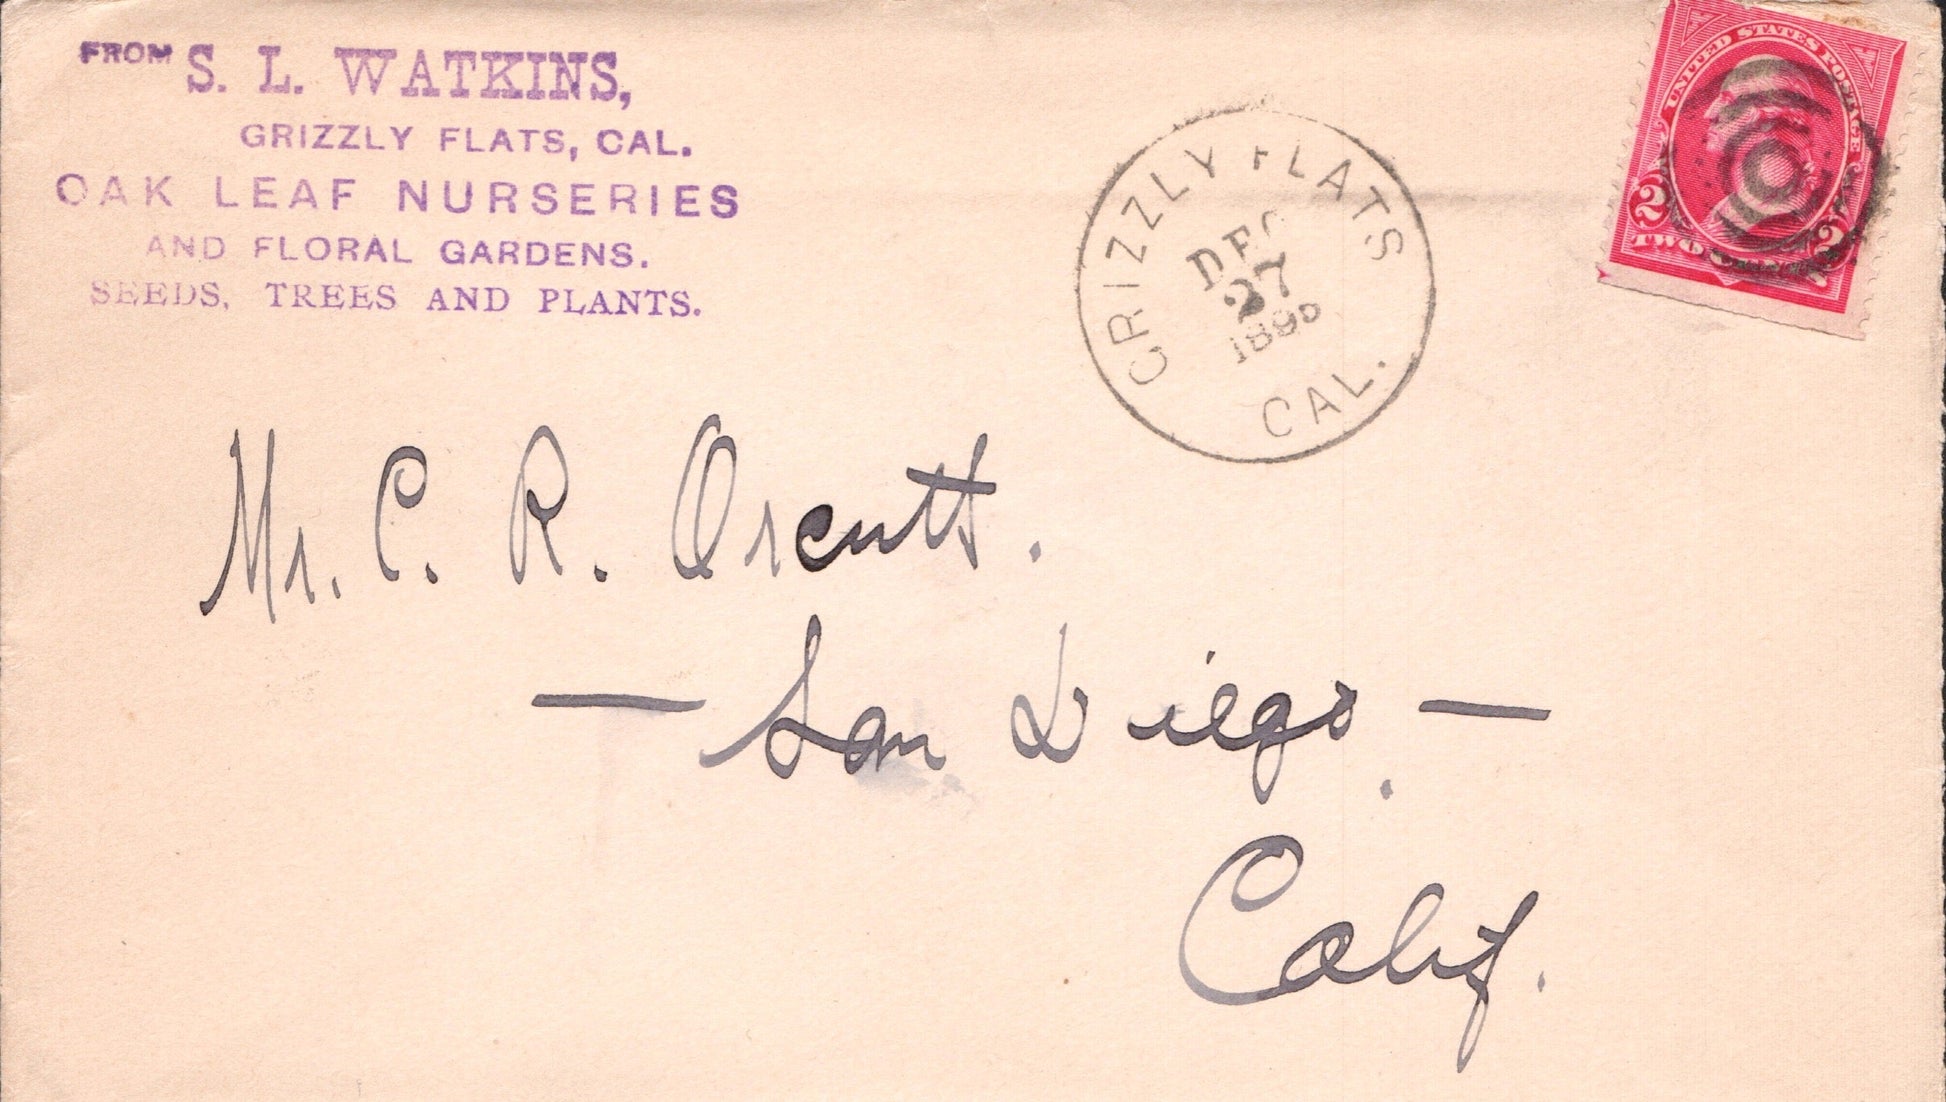 FROM S. L. WATKINS,
GRIZZLY FLATS, CAL.
OAK LEAF NURSERIES
AND FLORAL GARDENS.
SEEDS, TREES AND PLANTS.
GRIZZLY FLATS
DEC
27
CAL.
UNITED STATES POSTAGE
2 2
TWO
Mr. C. R. Orcutt.
— San Diego. —
Calif.